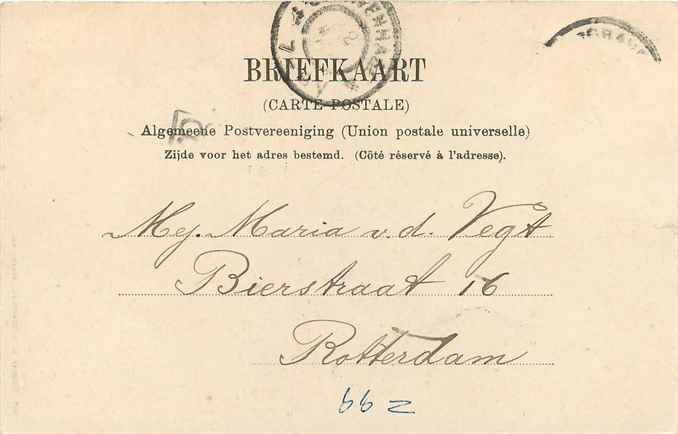 BRIEFKAART
(CARTE POSTALE)
Algemeene Postvereeniging (Union postale universelle)
Zijde voor het adres bestemd. (Côté réservé à l'adresse).
Mej. Maria v.d. Vegt
Bierstraat 16
Rotterdam